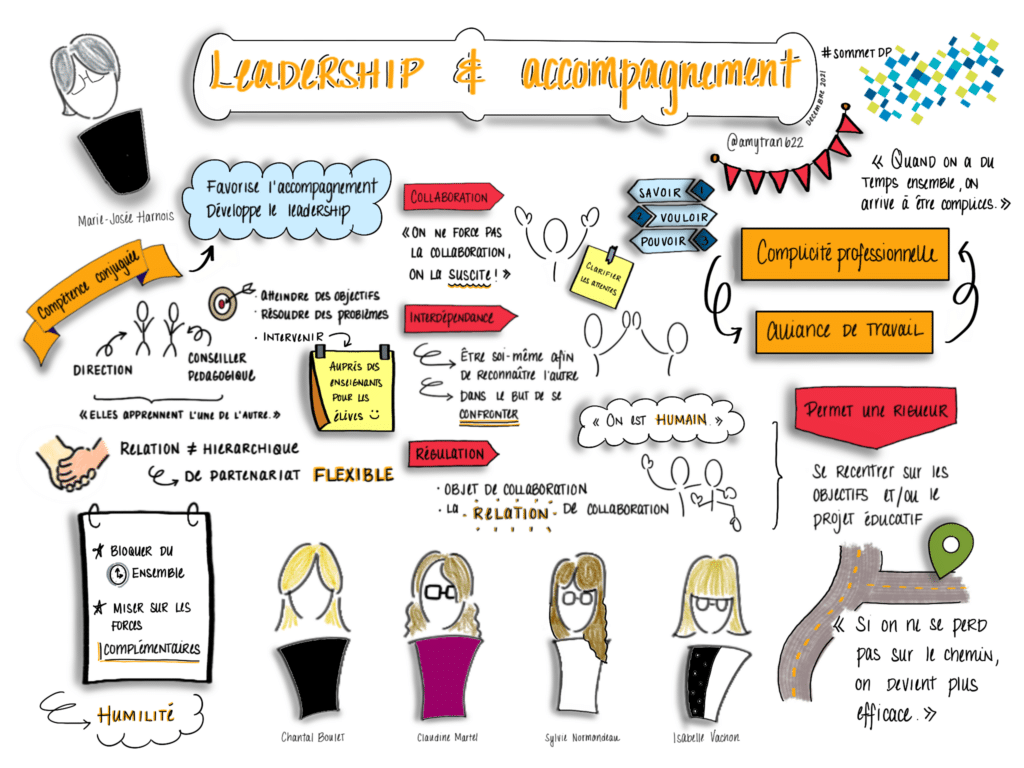 Leadership & accompagnement
DÉCEMBRE 2021
#sommetDP
@amytran622
Marie-Josée Harnois
Favorise l'accompagnement
Développe le leadership
Compétence conjuguée
DIRECTION
CONSEILLER
PÉDAGOGIQUE
« ELLES APPRENNENT L'UNE DE L'AUTRE. »
· ATTEINDRE DES OBJECTIFS
· RÉSOUDRE DES PROBLÈMES
· INTERVENIR
AUPRÈS DES
ENSEIGNANTS
POUR LES
ÉLÈVES
RELATION ≠ HIÉRARCHIQUE
DE PARTENARIAT FLEXIBLE
BLOQUER DU
ENSEMBLE
MISER SUR LES
FORCES
COMPLÉMENTAIRES
HUMILITÉ
COLLABORATION
« ON NE FORCE PAS
LA COLLABORATION,
ON LA SUSCITE ! »
SAVOIR 1
2 VOULOIR
POUVOIR 3
CLARIFIER
LES ATTENTES
INTERDÉPENDANCE
ÊTRE SOI-MÊME AFIN
DE RECONNAÎTRE L'AUTRE
DANS LE BUT DE SE
CONFRONTER
« ON EST HUMAIN. »
RÉGULATION
· OBJET DE COLLABORATION
· LA RELATION DE COLLABORATION
« QUAND ON A DU
TEMPS ENSEMBLE, ON
ARRIVE À ÊTRE COMPLICES. »
Complicité professionnelle
Alliance de travail
Permet une rigueur
SE RECENTRER SUR LES
OBJECTIFS ET/OU LE
PROJET ÉDUCATIF
« Si on ne se perd
pas sur le chemin,
on devient plus
efficace. »
Chantal Boulet
Claudine Martel
Sylvie Normandeau
Isabelle Vachon